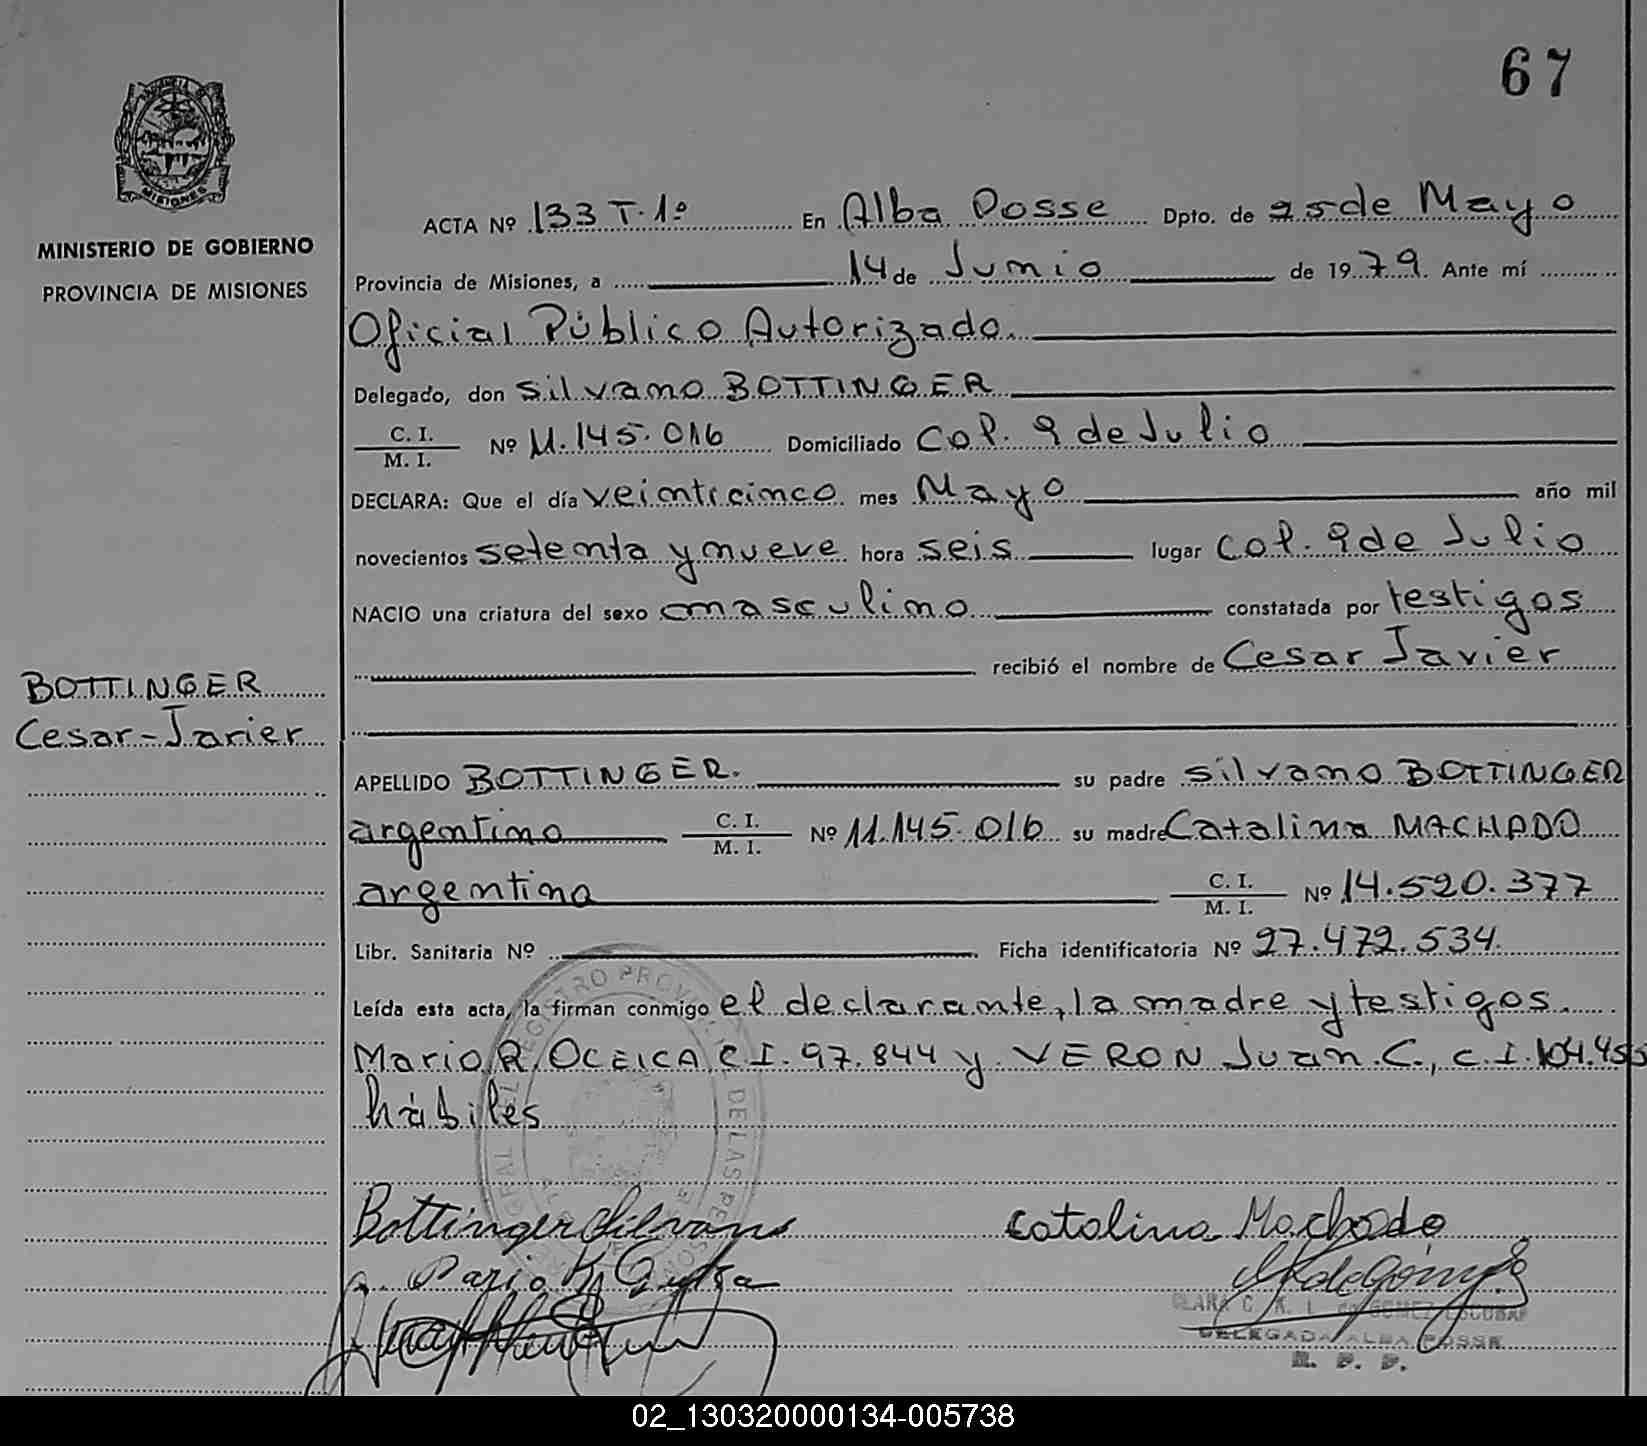 67
MINISTERIO DE GOBIERNO
PROVINCIA DE MISIONES
MISIONES
ACTA Nº 133 T. 1º En Alba Posse Dpto. de 25 de Mayo
Provincia de Misiones, a 14 de Junio de 1979. Ante mí
Oficial Público Autorizado.
Delegado, don Silvano BOTTINGER
C. I.
M. I. Nº 11.145.016 Domiciliado Col. 9 de Julio
DECLARA: Que el día veinticinco mes Mayo año mil
novecientos setenta y nueve hora seis lugar Col. 9 de Julio
NACIO una criatura del sexo masculino constatada por testigos
recibió el nombre de Cesar Javier
BOTTINGER
Cesar-Javier
APELLIDO BOTTINGER. su padre Silvano BOTTINGER
argentino C. I. M. I. Nº 11.145.016 su madre Catalina MACHADO
argentina C. I. M. I. Nº 14.520.377
Libr. Sanitaria Nº Ficha identificatoria Nº 27.472.534.
Leída esta acta, la firman conmigo el declarante, la madre y testigos.
Mario R. OCEICA C I. 97.844 y VERON Juan. C., C. I. 104.455
hábiles
REGISTRO PROVINCIAL DE LAS PERSONAS
Bottinger Silvano
Catalina Machado
CLARA C. DE GOMEZ ESCOBAR
DELEGADA ALBA POSSE
R. P. P.
02_130320000134-005738